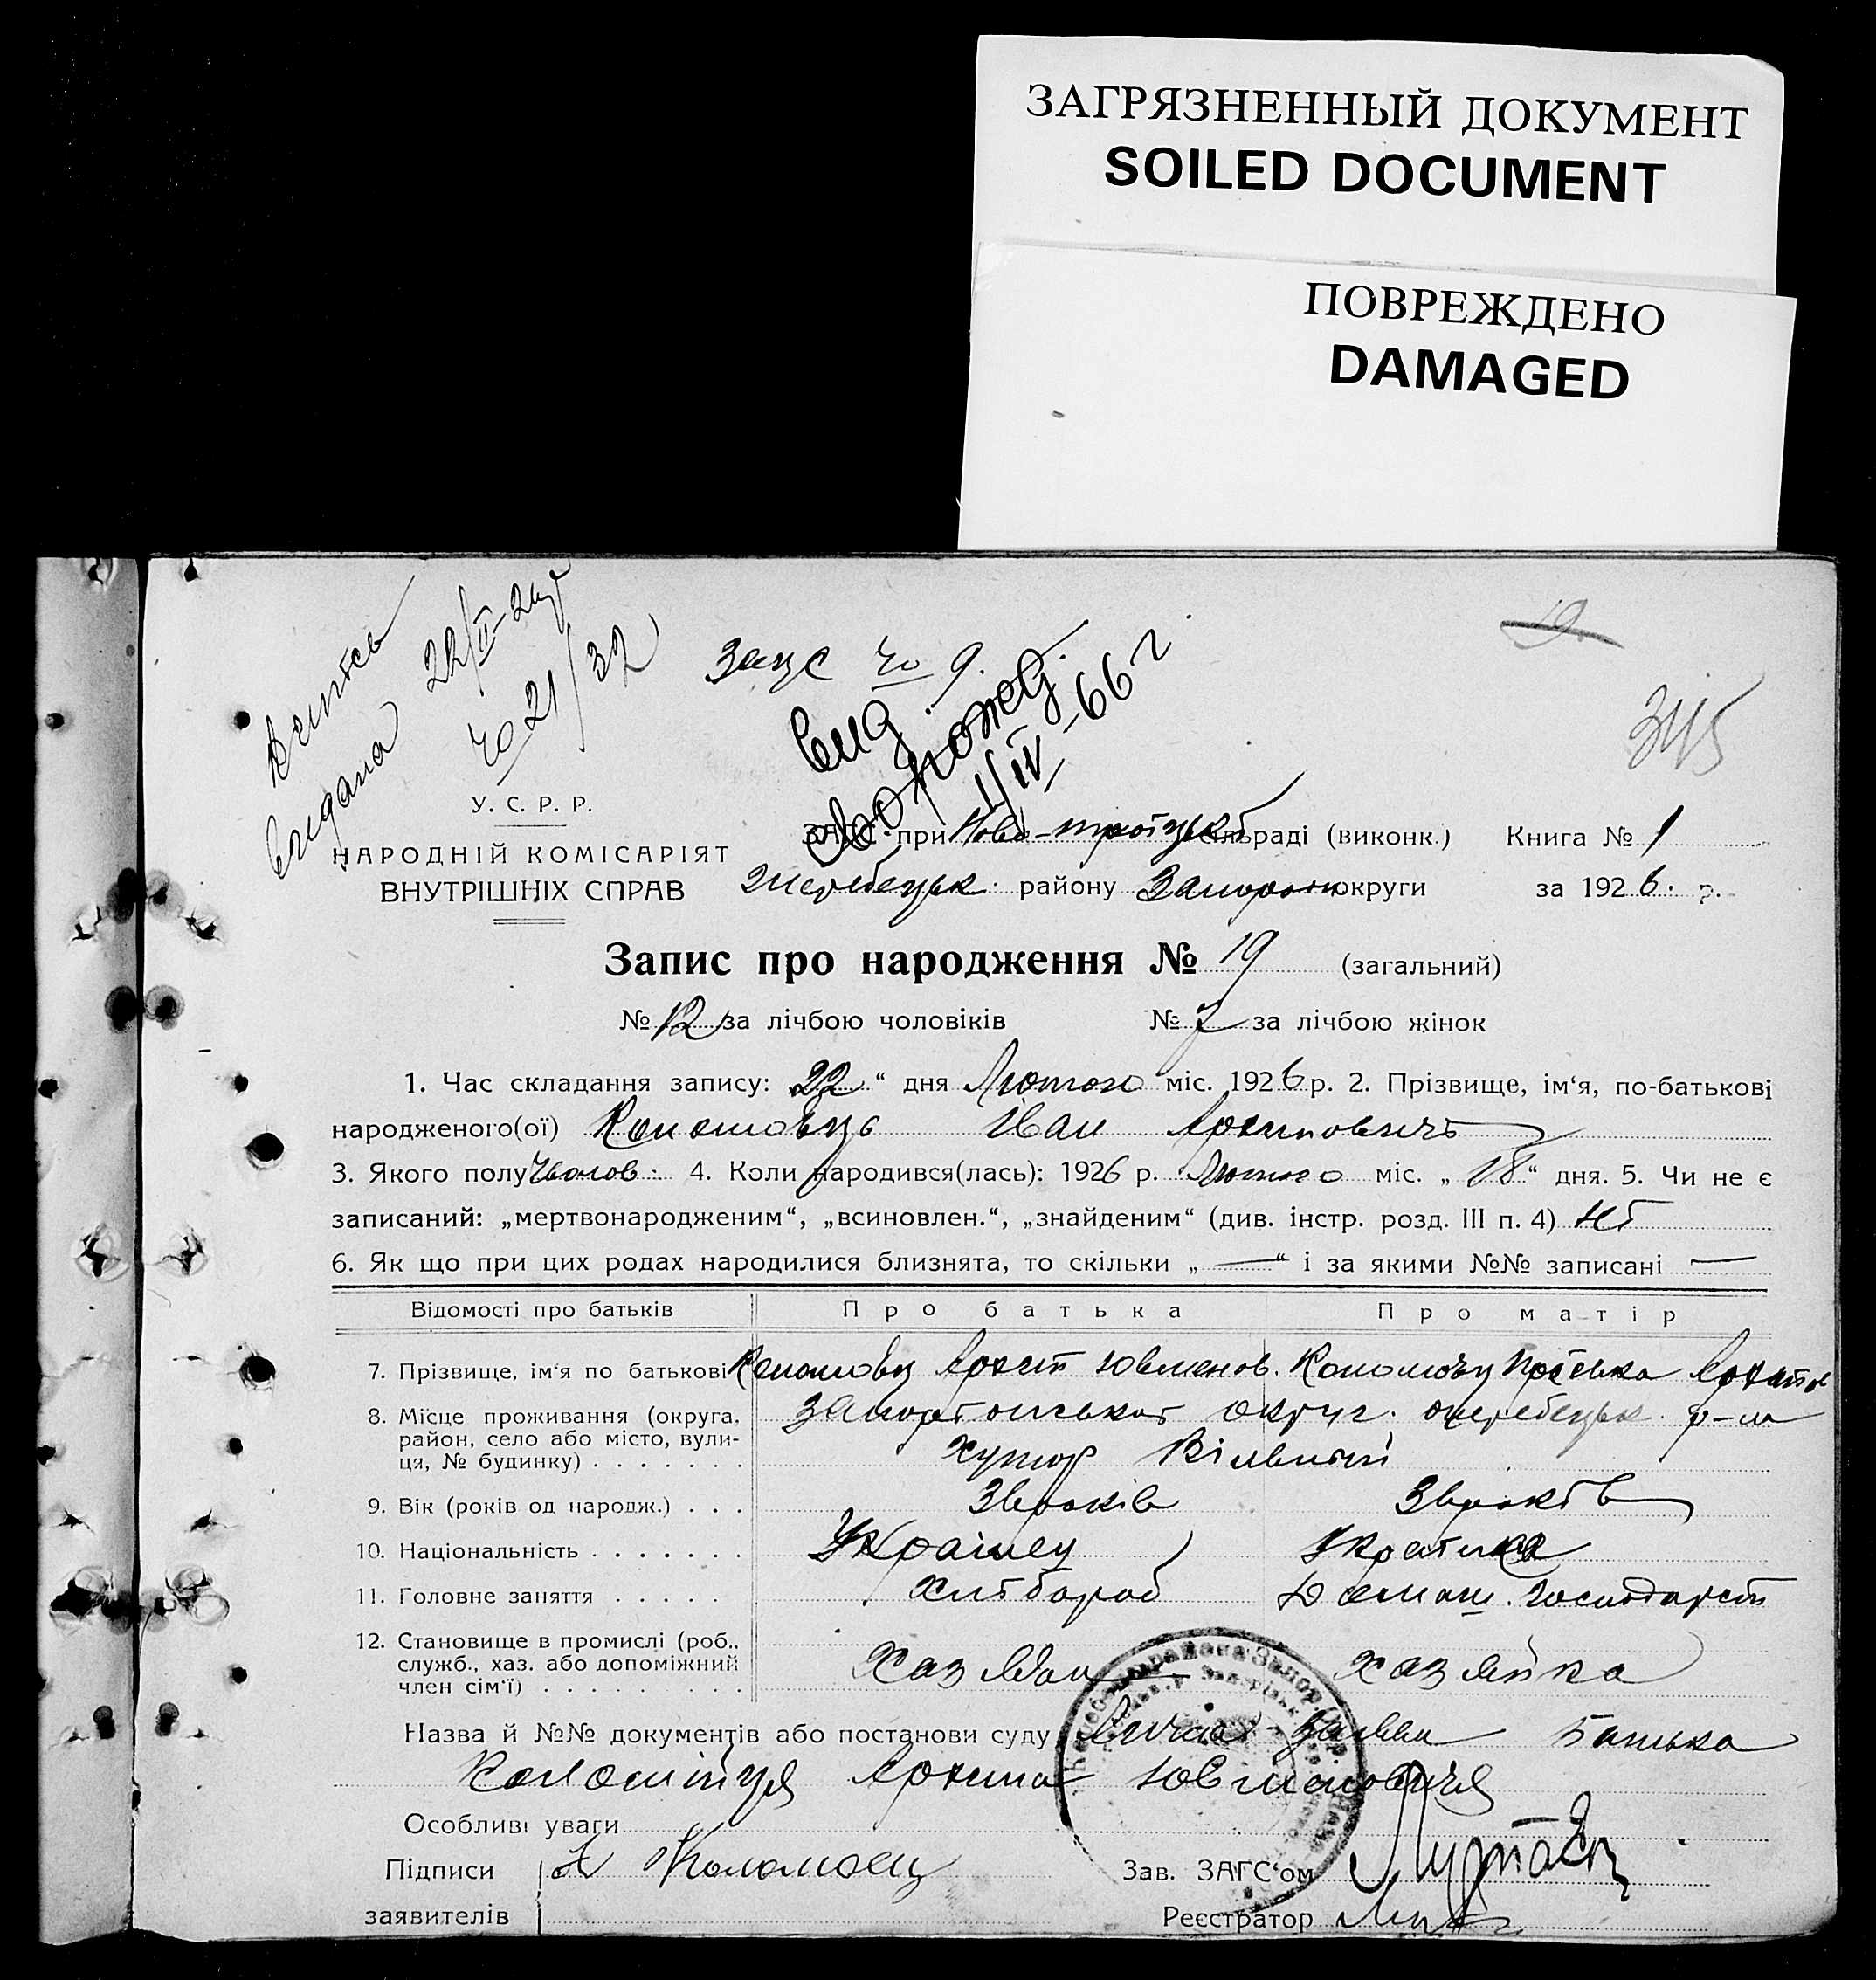 ЗАГРЯЗНЕННЫЙ ДОКУМЕНТ
SOILED DOCUMENT
ПОВРЕЖДЕНО
DAMAGED
19.
видана 22/II-26р
№ 21/32
Загс № 9.
вид.
1/IV-66 г
У. С. Р. Р.
НАРОДНІЙ КОМІСАРІЯТ
ВНУТРІШНІХ СПРАВ
ЗАГС при Ново-троїцьк сільраді (виконк.) Книга № 1
Жеребецьк. району Запоріж округи за 1926. р.
Запис про народження № 19 (загальний)
№ 12 за лічбою чоловіків № 7 за лічбою жінок
1. Час складання запису: 22 “ дня Лютого міс. 1926 р. 2. Прізвище, ім‘я, по-батькові
народженого(ої) Іван Архипович
3. Якого полу Чолов. 4. Коли народився(лась): 1926 р. Лютого міс. „ 18 “ дня. 5. Чи не є
записаний: „мертвонародженим“, „всиновлен.“, „знайденим“ (див. інстр. розд. III п. 4) Ні
6. Як що при цих родах народилися близнята, то скільки „ — “ і за якими №№ записані —
Відомості про батьків Про батька Про матір
7. Прізвище, ім‘я по батькові Архип Юхименов.
8. Місце проживання (округа, район, село або місто, вули-ця, № будинку) Запоріжської округ. Жеребецьк. р-ну
Хутор Вільний
9. Вік (років од народж.) років років
10. Національність Українец Українка
11. Головне заняття Хлібороб Домаш. господарст
12. Становище в промислі (роб., служб., хаз. або допоміжний член сім‘ї) Хазяїн Хазяйка
Назва й №№ документів або постанови суду заява Батька
Коломійця Архипа
Особливі уваги
Підписи Коломоец Зав. ЗАГС‘ом
заявителів Реєстратор